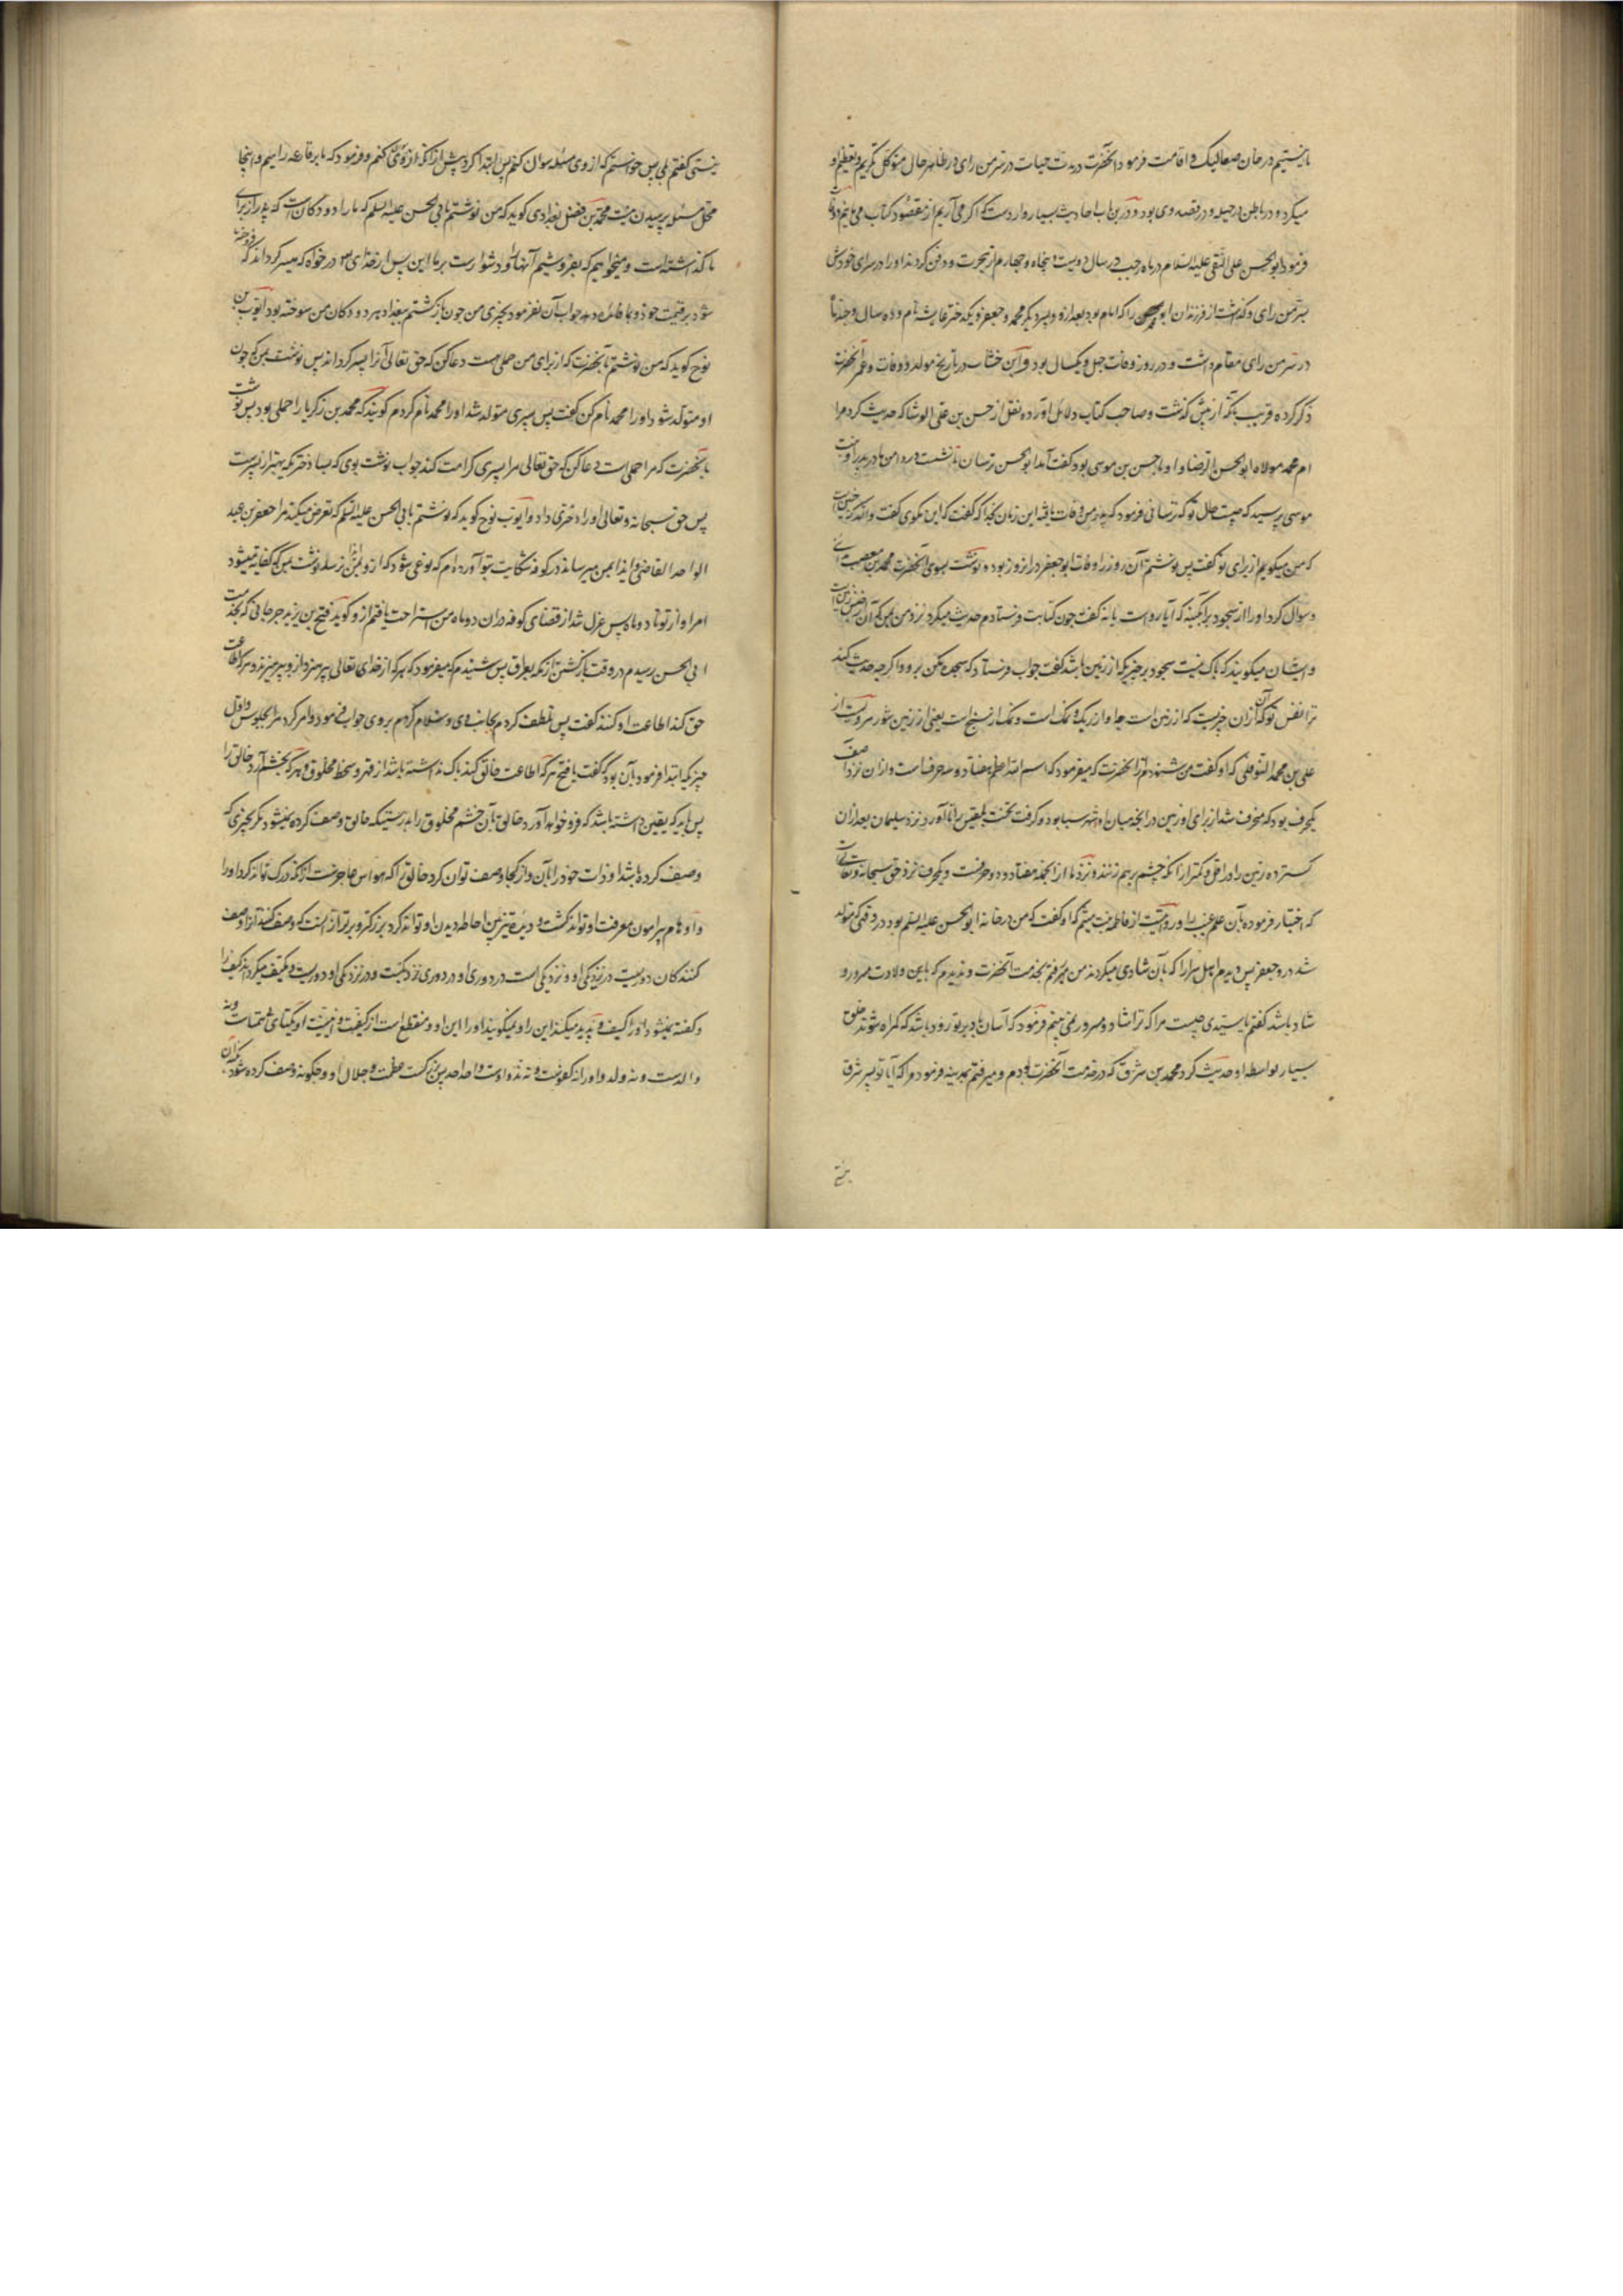 ما نیستیم در خان صعالیک و اقامت فرمود آنحضرت در مدت حیات در سر من رای در ظاهر حال متوکل تکریم و تعظیم او
میکرد و در باطن در حیله و در قصد وی بود و درین باب احادیث بسیار واردست که اگر می آریم از مقصود کتاب می مانیم
فرمود ابو الحسن علی النقی علیه السلام در ماه رجب در سال دویست و پنجاه و چهارم از هجرت و دفن کردند او را در سرای خودش
بسر من رای و گذاشت از فرزندان ابو محمد حسن را که امام بود بعد از و و پسر دیگر محمد و جعفر و یکدختر عایشه نام و ده سال و چند ماه
در سر من رای مقام داشت و در روز وفات چهل و یکسال بود و ابن خشاب در تاریخ مولد و وفات و عمر آنحضرت
ذکر کرده قریب بآنکه از پیش گذشت و صاحب کتاب دلائل آورده نقل از حسن بن علی الوشا که حدیث کرد مرا
ام محمد مولاه ابو الحسن الرضا و او با حسن بن موسی بود گفت آمد ابو الحسن ترسان تا نشست در دامن مادر پدر او بنت
موسی پرسید که چیست حال تو که ترسانی فرمود که پدر من وفات یافته این زمان بخدا که گفت که این مگوی گفت والله که چنین است
که من میگویم از برای تو گفت پس نوشتم آن روز را وفات ابو جعفر در انروز بود و نوشت بسوی آنحضرت محمد بن مصعب مدائنی
و سوال کرد او را از سجود بر آبگینه که آیا رواست یا نه گفت چون کتابت فرستادم حدیث میکرد نزد من نفس من که آن از زمین است
و ایشان میگویند که باک نیست سجود بر چیزیکه از زمین باشد گفت جواب فرستاد که سجده مکن برو و اگر چه حدیث کند
ترا نفس تو که آن از ان چیزیست که از زمین است چه او از ریگ و نمک است و نمک از سبخ است یعنی از زمین شور مرویست از
علی بن محمد النوفلی که او گفت من شنیدم از آنحضرت که میفرمود که اسم الله اعظم هفتاد و سه حرف است و از ان نزد آصف
یکحرف بود که منخرف شد از برای او زمین در انچه میان او و شهر سبا بود و گرفت تخت بلقیس را تا آورد نزد سلیمان بعد از ان
گسترده زمین را در اقل و کمتر از انکه چشم بر هم زنند و نزد ما از انجمله هفتاد و دو حرفست و یکحرف نزد حق سبحانه و تعالی است
که اختیار فرموده بآن علم غیب را و روایتست از فاطمه بنت هیثم که او گفت که من در خانه ابو الحسن علیه السلم بودم در وقتی که متولد
شد درو جعفر پس دیدم اهل سرا را که بآن شادی میکردند من میرفتم بخدمت آنحضرت و ندیدم که باین ولادت مسرور و
شاد باشد گفتم یا سیدی چیست مرا که ترا شاد و مسرور نمی بینم فرمود که آسان باد بر تو زود باشد که گمراه شوند خلق
بسیار بواسطه او حدیث کرد محمد بن شرف که در خدمت آنحضرت بودم و میرفتم بمدینه فرمود مرا که آیا تو پسر شرف
نیستی گفتم بلی پس خواستم که از وی مسئله سوال کنم پس ابتدا کرد پیش از آنکه از وی سوال کنم و فرمود که ما بر قارعه راهیم و اینجا
محل مسئله پرسیدن نیست محمد بن فضل بغدادی گوید که من نوشتم بابی الحسن علیه السلم که ما را دو دکان است که پدر از برای
ما گذاشته است و میخواهیم که بفروشیم آنها را و دشوارست بر ما این پس از خدای در خواه که میسر گرداند که فروخته
شود بر قیمت خود و ما فائده دهد جواب آن نفرمود بچیزی من چون بازگشتم ببغداد هر دو دکان من سوخته بود ایوب بن
نوح گوید که من نوشتم بآنحضرت که از برای من حملی هست دعا کن که حق تعالی آنرا پسر گرداند پس نوشت بمن که چون
او متولد شود او را محمد نام کن گفت پس پسری متولد شد او را محمد نام کردم گویند که محمد بن زکریا را حملی بود پس نوشت
بآنحضرت که مرا حملی است دعا کن که حق تعالی مرا پسری کرامت کند جواب نوشت بوی که بسا دختر که بهتر از پسرست
پس حق سبحانه و تعالی او را دختری داد و ایوب نوح گوید که نوشتم بابی الحسن علیه السلم که تعرض میکند مرا جعفر بن عبد
الواحد القاضی و ایذا بمن میرساند در کوفه شکایت بتو آورده ام که نوعی شود که ازو ایذا بمن نرسد نوشت بمن که کفایه میشود
امر او از تو تا دو ماه پس عزل شد از قضای کوفه در ان دو ماه من استراحت یافتم ازو گوید فتح بن یزید جرجانی که بخدمت
ابی الحسن رسیدم در وقت بازگشتن از مکه بعراق پس شنیدم که میفرمود که هر که از خدای تعالی پرهیزد ازو پرهیزند و هر که اطاعت
حق کند اطاعت او کنند گفت پس تلطف کردم بجانب وی و سلام کردم بروی جواب فرمود و امر کرد مرا بجلوس و اول
چیزیکه ابتدا فرمود بآن بود که گفت یا فتح هر که اطاعت خالق کند باک نداشته باشد از قهر و سخط مخلوق و هر که بخشم آرد خالق را
پس باید که یقین داشته باشد که فرو خواهد آورد خالق بآن خشم مخلوق را بدرستیکه خالق وصف کرده نمیشود مگر بچیزی که
وصف کرده باشد او ذات خود را بآن و از کجا وصف توان کرد خالق را که حواس عاجزست از آنکه درک تواند کرد او را
و اوهام پیرامون معرفت او تواند گشت و دیده تیزبین احاطه دیدن او تواند کرد بزرگتر و برتر از انست که وصف کنند او را وصف
کنندگان دورست در نزدیکی او و نزدیکی است در دوری او در دوری نزدیکست و در نزدیکی او دورست و مکیف میگرداند کیف را
و گفته نمیشود او را کیف و پدید میکند این را و نمیگویند او را این او و منقطع است از کیفیت و اینیت او یکتای صمدست و نه
والدست و نه ولد و او را نه کفوست و نه ند و اوست واحد احد پس بزرگست عظمت و جلال او و چگونه وصف کرده شود بکنه آن